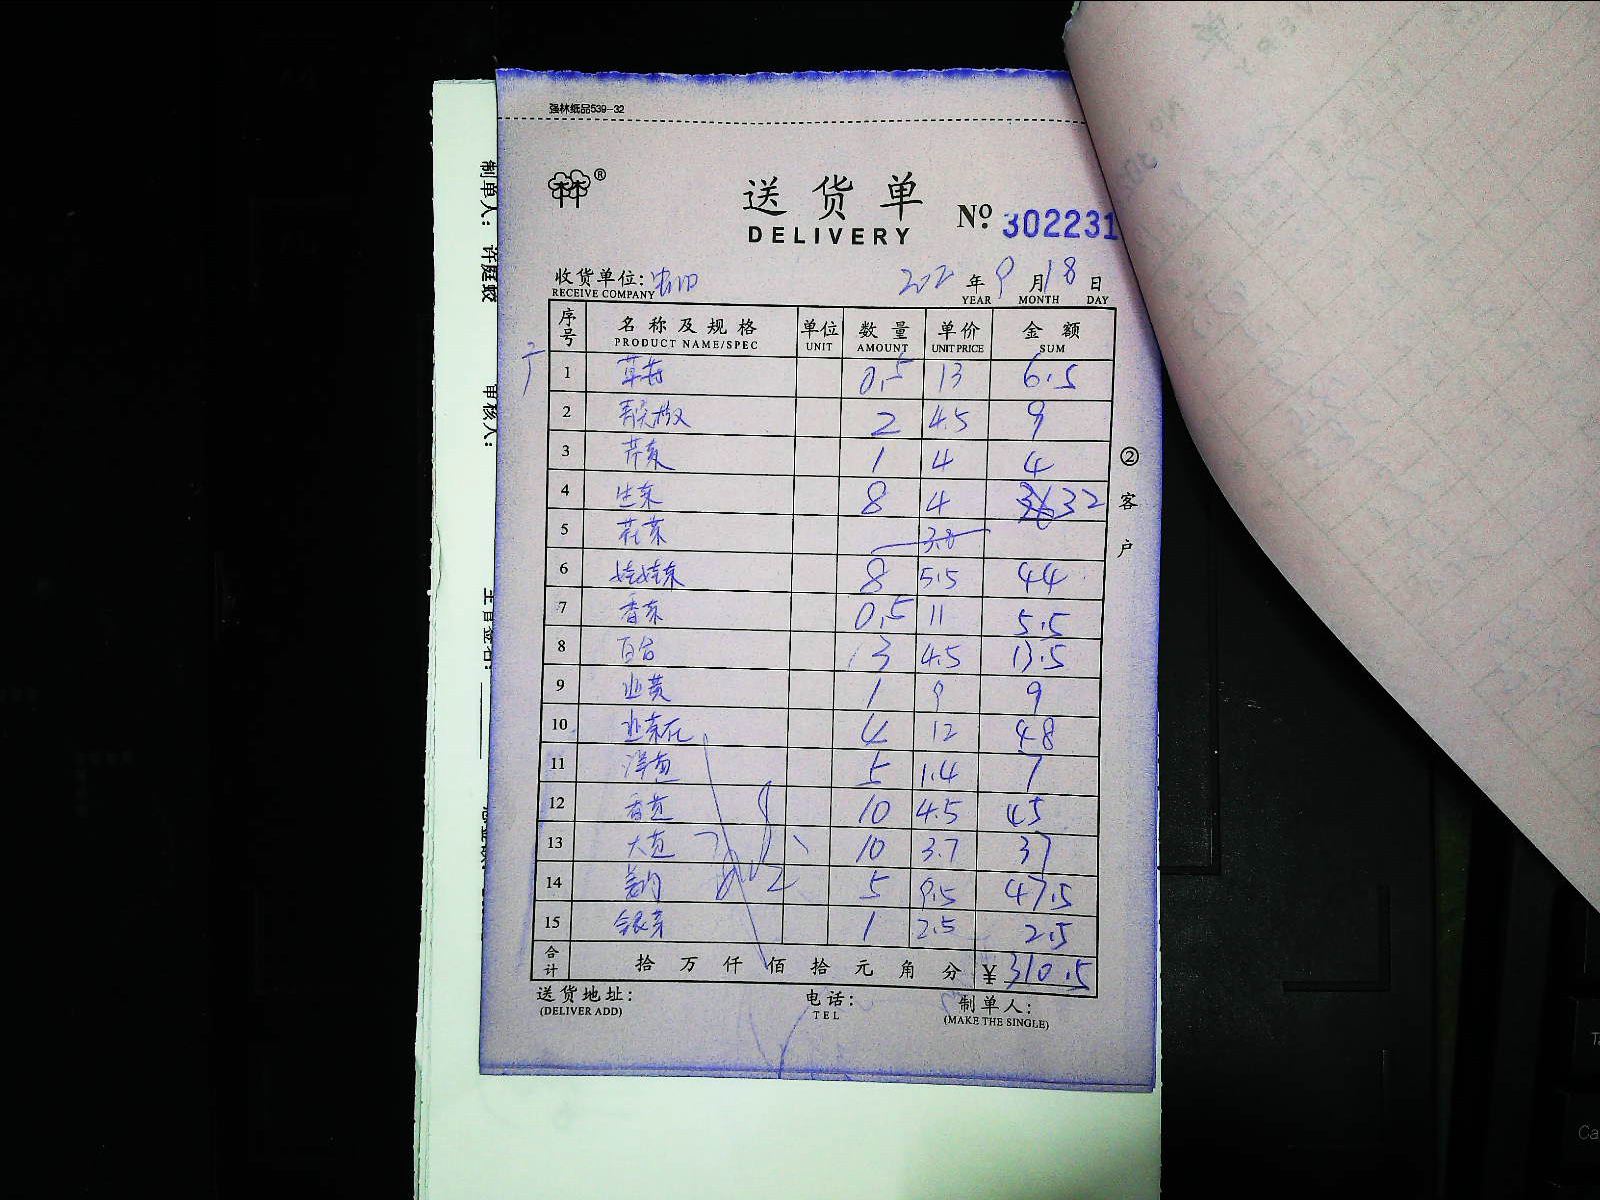 强林纸品539-32
送货单
DELIVERY
№ 302231
收货单位:
RECEIVE COMPANY
202 年 9 月 18 日
YEAR MONTH DAY
序号 名称及规格 单位 数量 单价 金额
PRODUCT NAME/SPEC UNIT AMOUNT UNIT PRICE SUM
1 草菇 0.5 13 6.5
2 青尖椒 2 4.5 9
3 芹菜 1 4 4
4 生菜 8 4 32
5 花菜 3.8
6 娃娃菜 8 5.5 44
7 香菜 0.5 11 5.5
8 百合 3 4.5 13.5
9 韭黄 1 9 9
10 韭菜花 4 12 48
11 洋葱 5 1.4 7
12 香葱 10 4.5 45
13 大葱 10 3.7 37
14 5 9.5 47.5
15 银芽 1 2.5 2.5
合计 拾 万 仟 佰 拾 元 角 分 ¥310.5
送货地址: 电话: 制单人:
(DELIVER ADD) TEL (MAKE THE SINGLE)
②客户
制单人: 许庭姣
审核人: